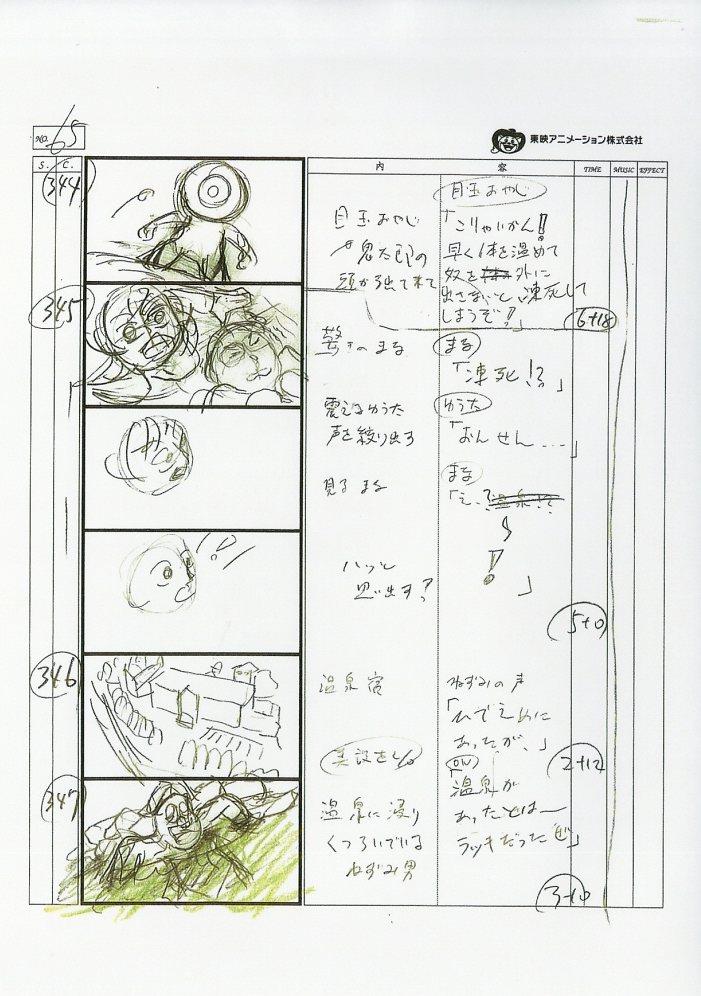 NO. 65
東映アニメーション株式会社
S. C. 内 容 TIME MUSIC EFFECT
344
目玉おやじ
鬼太郎の
頭から出て来て
目玉おやじ
「こりゃいかん!
早く体を温めて
奴を外に
出さないと凍死して
しまうぞ!」
6+18
345
驚きのまな
まな
「凍死!?」
震えるゆうた
声を絞り出す
ゆうた
「おんせん…」
見るまな
まな
「え、?温泉!?
ハッと
思い出す?
!」
5+0
346
温泉宿
美設さん
ねずみの声
「ひでえめに
あったが、」
2+12
347
温泉に浸り
くつろいでいる
ねずみ男
(ON)
「温泉が
あったとはー
ラッキーだったぜ」
3+10